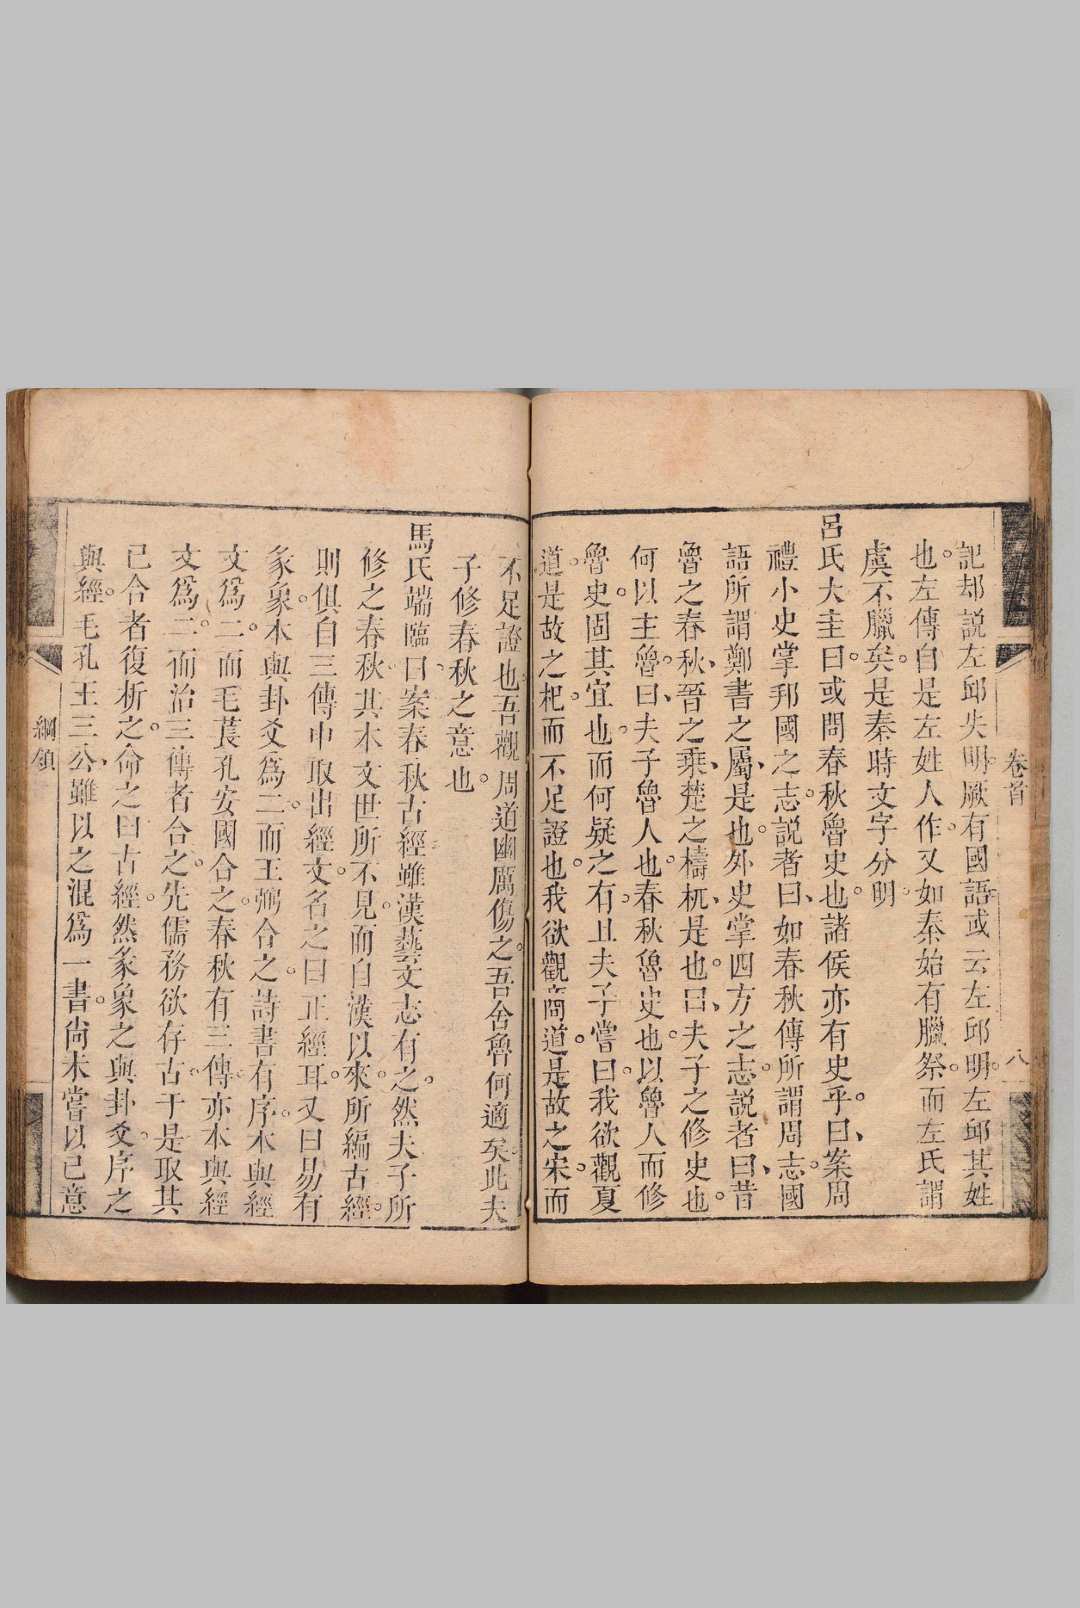 卷首
八
記却説左邱失明厥有國語或云左邱明左邱其姓
也左傳自是左姓人作又如秦始有臘祭而左氏謂
虞不臘矣是秦時文字分明
呂氏大圭曰或問春秋魯史也諸侯亦有史乎曰案周
禮小史掌邦國之志説者曰如春秋傳所謂周志國
語所謂鄭書之屬是也外史掌四方之志説者曰昔
魯之春秋晉之乗楚之檮杌是也曰夫子之修史也
何以主魯曰夫子魯人也春秋魯史也以魯人而修
魯史固其宜也而何疑之有且夫子嘗曰我欲觀夏
道是故之杞而不足證也我欲觀商道是故之宋而
不足證也吾觀周道幽厲傷之吾舍魯何適矣此夫
子修春秋之意也
馬氏端臨曰案春秋古經雖漢藝文志有之然夫子所
修之春秋其本文世所不見而自漢以來所編古經
則俱自三傳中取出經文名之曰正經耳又曰易有
彖象本與卦爻爲二而王弼合之詩書有序本與經
文爲二而毛萇孔安國合之春秋有三傳亦本與經
文爲二而治三傳者合之先儒務欲存古于是取其
已合者復析之命之曰古經然彖象之與卦爻序之
與經毛孔王三公雖以之混爲一書尚未嘗以己意
綱領